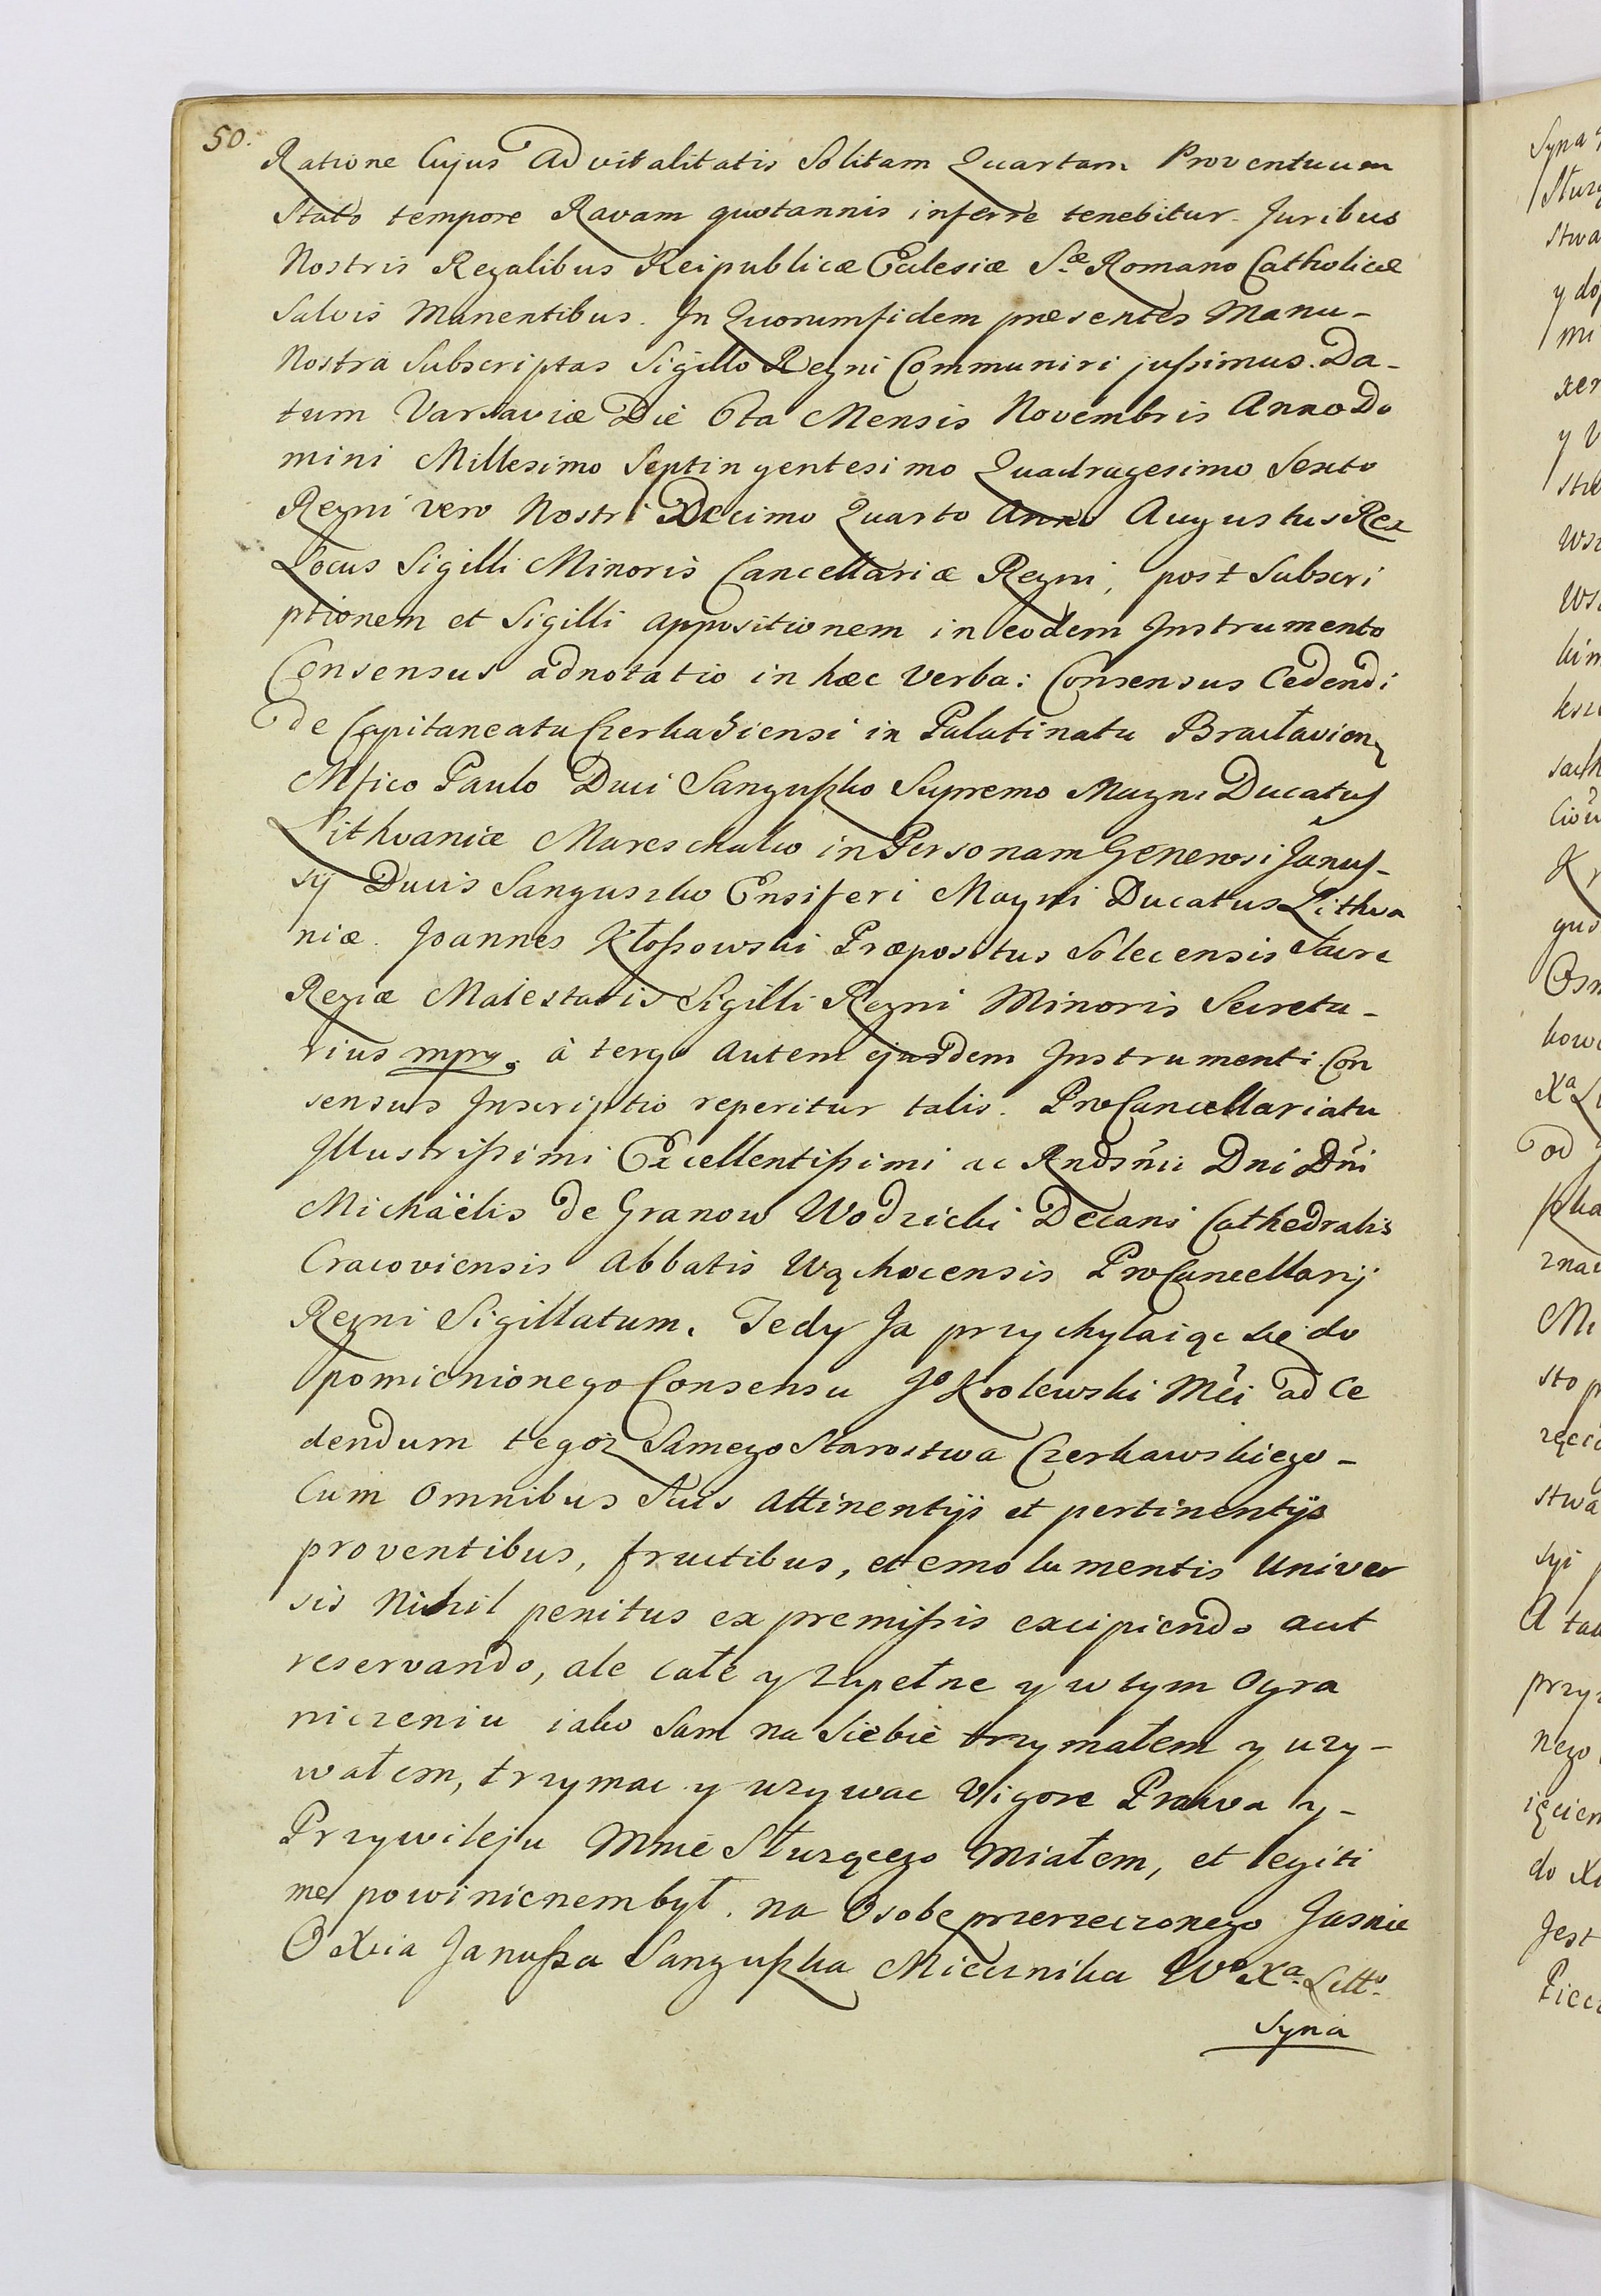 50.
Ratione Cujus Advitalitatis Solitam Quartam Proventuum
Stato tempore Ravam quotannis inferre tenebitur. Juribus
Nostris Regalibus Reipublicæ Ecclesiæ Sæ Romano Catholicæ
Salvis Manentibus. In Quorumfidem præsentes Manu-
Nostra Subscriptas Sigillo Regni Communiri jußimus. Da-
tum Varsaviæ Die 6ta Mensis Novembris Anno Do
mini Millesimo Septingentesimo Quadragesimo Sexto
Regni vero Nostri Decimo Quarto Anno Augustus Rex
Locus Sigilli Minoris Cancellariæ Regni, post Subscri
ptionem et Sigilli appositionem in eodem Instrumento
Consensus adnotatio in hæc verba: Consensus Cedendi
de Capitaneatu Czerkasiensi in Palatinatu
Mfico Paulo Duci Sangußko Supremo Magni Ducatus
Lithvaniæ Mareschalco in Personam Generosi Janus-
sij Ducis Sanguszko Ensiferi Magni Ducatus Lithva
niæ. Joannes Kłoßowski Præpositus Solecensis Sacre
Regiæ Maiestatis Sigilli Regni Minoris Secreta-
rius mpp. à tergo autem ejusdem Instrumenti Con
sensus Inscriptio reperitur talis. ProCancellariatu
Illustrißimi Excellentißimi ac Rndsm̃i Dni Dñi
Michaëlis de Granow Wodzicki Decani Cathedralis
Cracoviensis Abbatis Wąchocensis ProCancellarij
Regni Sigillatum. Tedy Ja przychylaiąc się do
pomienionego Consensu Jo Krolewski Mći ad Ce
dendum tegoż Samego Starostwa Czerkawskiego-
Cum Omnibus Suis Attinentijs et pertinentijs
proventibus, fructibus, et emolumentis Univer
sis Nihil penitus ex premißis excipiendo aut
reservando, ale całe y zupełne y w tym Ogra
niczeniu iako Sam na Siebie trzymałem y uzy-
wałem, trzymac y uzywac Vigore Prawa y-
Przywileju Mnie Słuzącego Miałem, et legiti
me powinienem był. na Osobę przerzeczonego Jasnie
O Xcia Janußa Sangußka Miecznika Wo Xa Litto
Syna